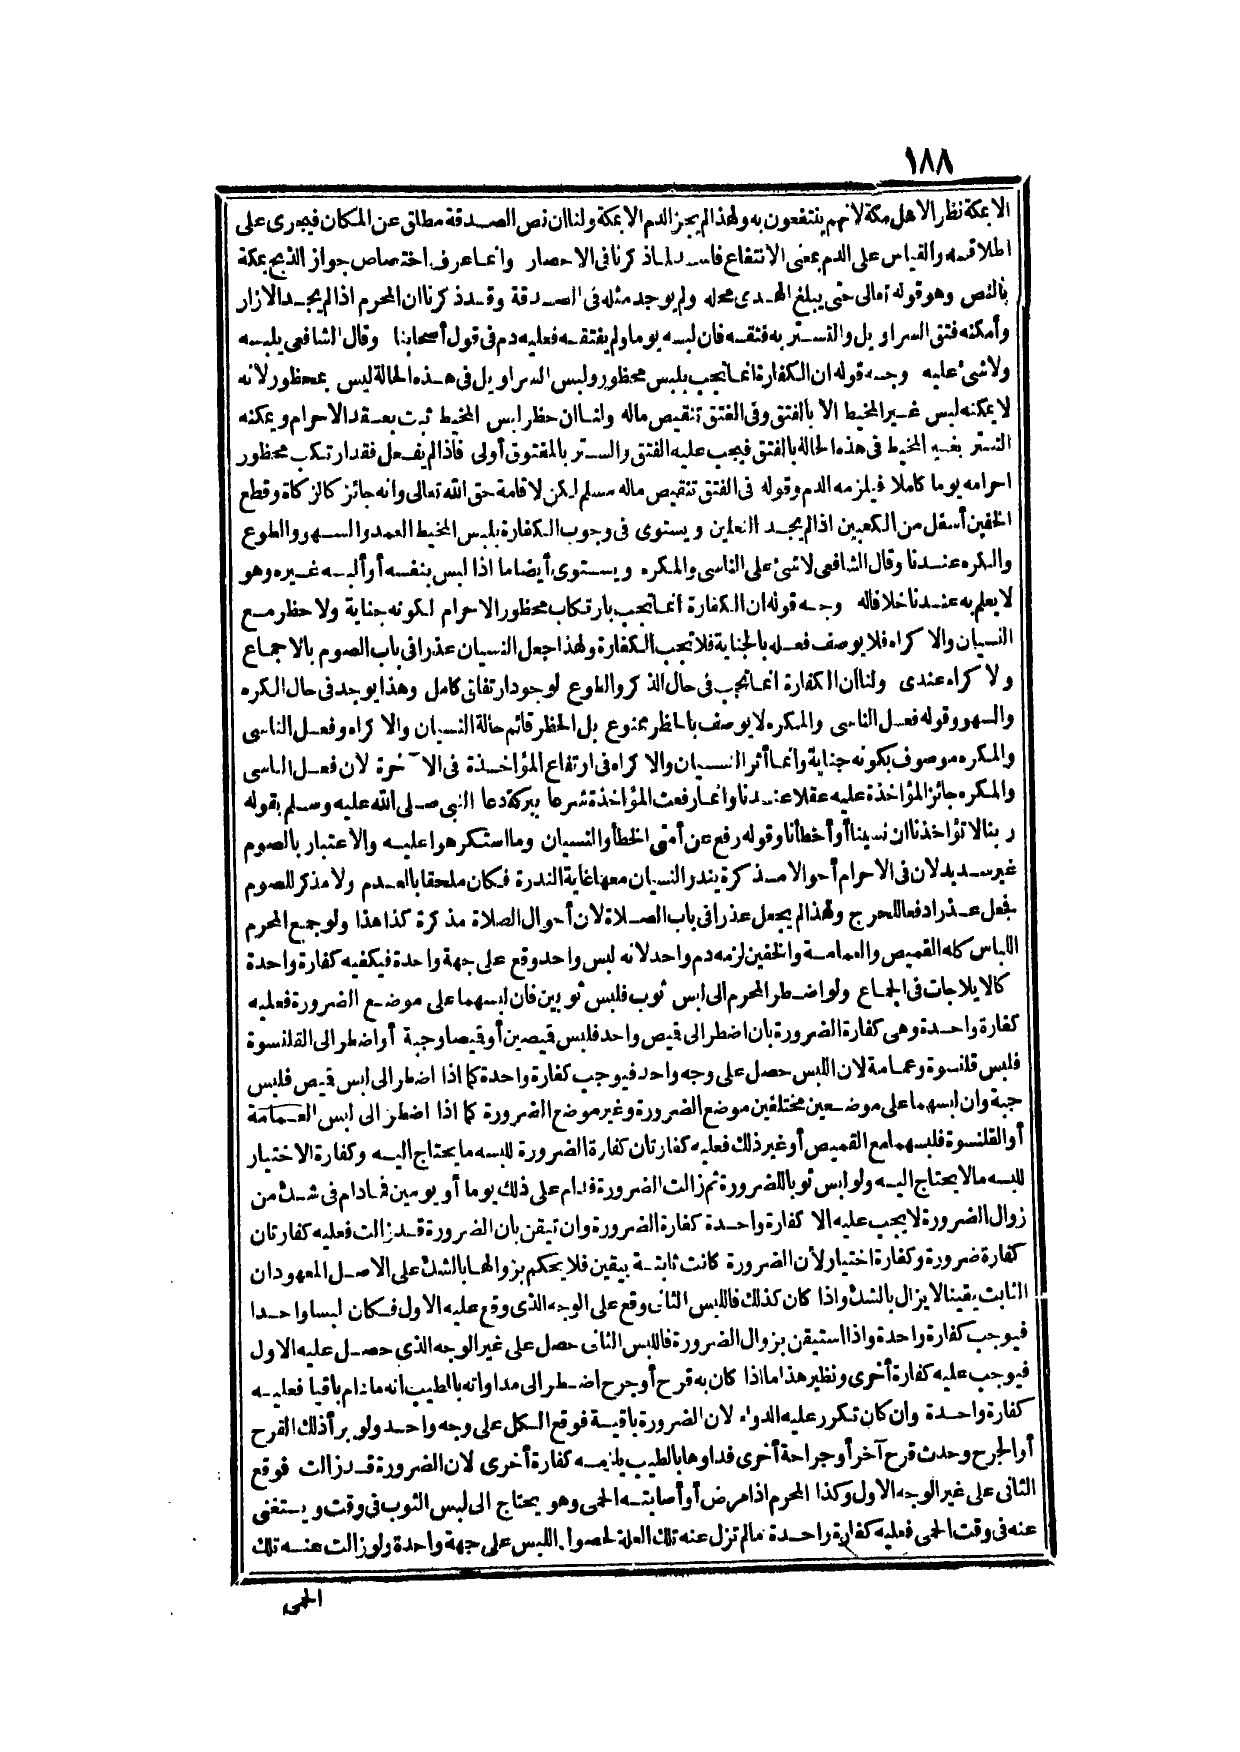 ١٨٨
الا بمكة نظرا لاهل مكة لانهم ينتفعون به ولهذا لم يجز الدم الا بمكة ولنا ان نص الصدقة مطلق عن المكان فيجرى على
اطلاقه والقياس على الدم بمعنى الانتفاع فاسد لما ذكرنا فى الاحصار وانما عرف اختصاص جواز الذبح بمكة
بالنص وهو قوله تعالى حتى يبلغ الهدى محله ولم يوجد مثله فى الصدقة وقد ذكرنا ان المحرم اذا لم يجد الازار
وأمكنه فتق السراويل والتستر به فتقه فان لبسه يوما ولم يفتقه فعليه دم فى قول أصحابنا وقال الشافعى يلبسه
ولا شئ عليه وجه قوله ان الكفارة انما تجب بلبس محظور ولبس السراويل فى هذه الحالة ليس بمحظور لانه
لا يمكنه لبس غير المخيط الا بالفتق وفى الفتق تنقيص ماله ولنا ان حظر لبس المخيط ثبت بعقد الاحرام ويمكنه
التستر بغير المخيط فى هذه الحالة بالفتق فيجب عليه الفتق والستر بالمفتوق أولى فاذا لم يفعل فقد ارتكب محظور
احرامه يوما كاملا فيلزمه الدم وقوله فى الفتق تنقيص ماله مسلم لكن لاقامة حق الله تعالى وانه جائز كالزكاة وقطع
الخفين أسفل من الكعبين اذا لم يجد النعلين ويستوى فى وجوب الكفارة بلبس المخيط العمد والسهو والطوع
والكره عندنا وقال الشافعى لا شئ على الناسى والمكره ويستوى أيضا ما اذا لبس بنفسه أو ألبسه غيره وهو
لا يعلم به عندنا خلافا له وجه قوله ان الكفارة انما تجب بارتكاب محظور الاحرام لكونه جناية ولا حظر مع
النسيان والاكراه فلا يوصف فعله بالجناية فلا تجب الكفارة ولهذا جعل النسيان عذرا فى باب الصوم بالاجماع
ولاكراه عندى ولنا ان الكفارة انما تجب فى حال الذكر والطوع لوجود ارتفاق كامل وهذا يوجد فى حال الكره
والسهو وقوله فعل الناسى والمكره لا يوصف بالحظر ممنوع بل الحظر قائم حالة النسيان والاكراه وفعل الناسى
والمكره موصوف بكونه جناية وانما أثر النسيان والاكراه فى ارتفاع المؤاخذة فى الآخرة لان فعل الناسى
والمكره جائز المؤاخذة عليه عقلا عندنا وانما رفعت المؤاخذة شرعا ببركة دعا النبى صلى الله عليه وسلم بقوله
ربنا لا تؤاخذنا ان نسينا أو أخطأنا وقوله رفع عن أمتى الخطأ والنسيان وما استكرهوا عليه والاعتبار بالصوم
غير سديد لان فى الاحرام أحوالا مذكرة يندر النسيان معها غاية الندرة فكان ملحقا بالعدم ولا مذكر للصوم
فجعل عذرا دفعا للحرج ولهذا لم يجعل عذرا فى باب الصلاة لان أحوال الصلاة مذكرة كذا هذا ولو جمع المحرم
اللباس كله القميص والعمامة والخفين لزمه دم واحد لانه لبس واحد وقع على جهة واحدة فيكفيه كفارة واحدة
كالايلاجات فى الجماع ولو اضطر المحرم الى لبس ثوب فلبس ثوبين فان لبسهما على موضع الضرورة فعليه
كفارة واحدة وهى كفارة الضرورة بان اضطر الى قيص واحد فلبس قيصين أو قيصا وجبة أو اضطر الى القلنسوة
فلبس قلنسوة وعمامة لان اللبس حصل على وجه واحد فيوجب كفارة واحدة كما اذا اضطر الى لبس قيص فلبس
جبة وان لبسهما على موضعين مختلفين موضع الضرورة وغير موضع الضرورة كما اذا اضطر الى لبس العمامة
أو القلنسوة فلبسهما مع القميص أو غير ذلك فعليه كفارتان كفارة الضرورة للبسه ما يحتاج اليه وكفارة الاختيار
للبسه مالا يحتاج اليه ولو لبس ثوبا للضرورة ثم زالت الضرورة فدام على ذلك يوما أو يومين فمادام فى شك من
زوال الضرورة لا يجب عليه الا كفارة واحدة كفارة الضرورة وان تيقن بان الضرورة قد زالت فعليه كفارتان
كفارة ضرورة وكفارة اختيار لأن الضرورة كانت ثابتة بيقين فلا يحكم بزوالها بالشك على الاصل المعهود ان
الثابت يقينا لا يزال بالشك واذا كان كذلك فاللبس الثانى وقع على الوجه الذى وقع عليه الاول فكان لبسا واحدا
فيوجب كفارة واحدة واذا استيقن بزوال الضرورة فاللبس الثانى حصل على غير الوجه الذى حصل عليه الاول
فيوجب عليه كفارة أخرى ونظير هذا ما اذا كان به قرح أو جرح اضطر الى مداواته بالطيب انه مادام باقيا فعليه
كفارة واحدة وان كان تكرر عليه الدواء لان الضرورة باقية فوقع الكل على وجه واحد ولو برأ ذلك القرح
أو الجرح وحدث قرح آخر أو جراحة أخرى فداوها بالطيب يلزمه كفارة أخرى لان الضرورة قد زالت فوقع
الثانى على غير الوجه الاول وكذا المحرم اذا مرض أو أصابته الحمى وهو يحتاج الى لبس الثوب فى وقت ويستغنى
عنه فى وقت الحمى فعليه كفارة واحدة مالم تزل عنه تلك العلة لحصول اللبس على جهة واحدة ولو زالت عنه تلك
الحمى